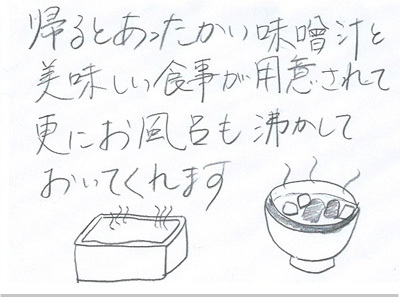 帰るとあったかい味噌汁と
美味しい食事が用意されて
更にお風呂も沸かして
おいてくれます